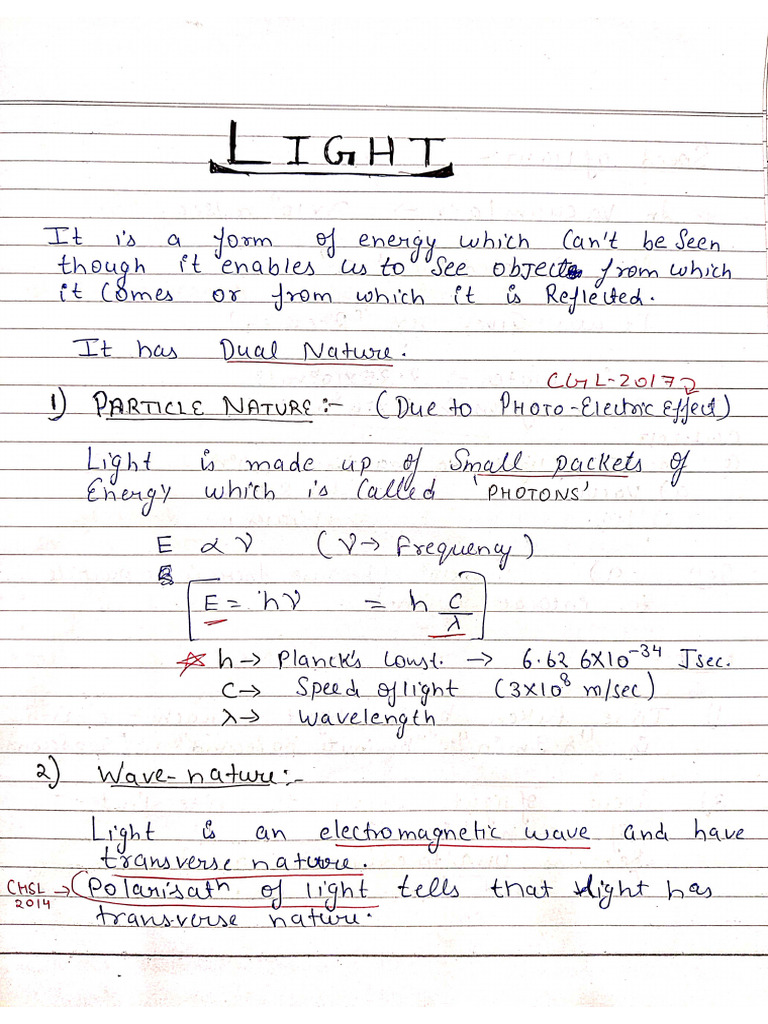 LIGHT
It is a form of energy which can't be seen
though it enables us to see objects from which
it comes or from which it is Reflected.
It has Dual Nature.
CGL-2017
1) PARTICLE NATURE:- (Due to PHOTO-Electric Effect)
Light is made up of Small packets of
Energy which is called 'PHOTONS'
E ∝ ν (ν → Frequency)
E = hν = h c/λ
h → Planck's Const. → 6.626×10⁻³⁴ Jsec.
C → Speed of light (3×10⁸ m/sec)
λ → wavelength
2) Wave-nature:-
Light is an electromagnetic wave and have
transverse nature.
CHSL 2014 → Polarisatn of light tells that light has
transverse nature.